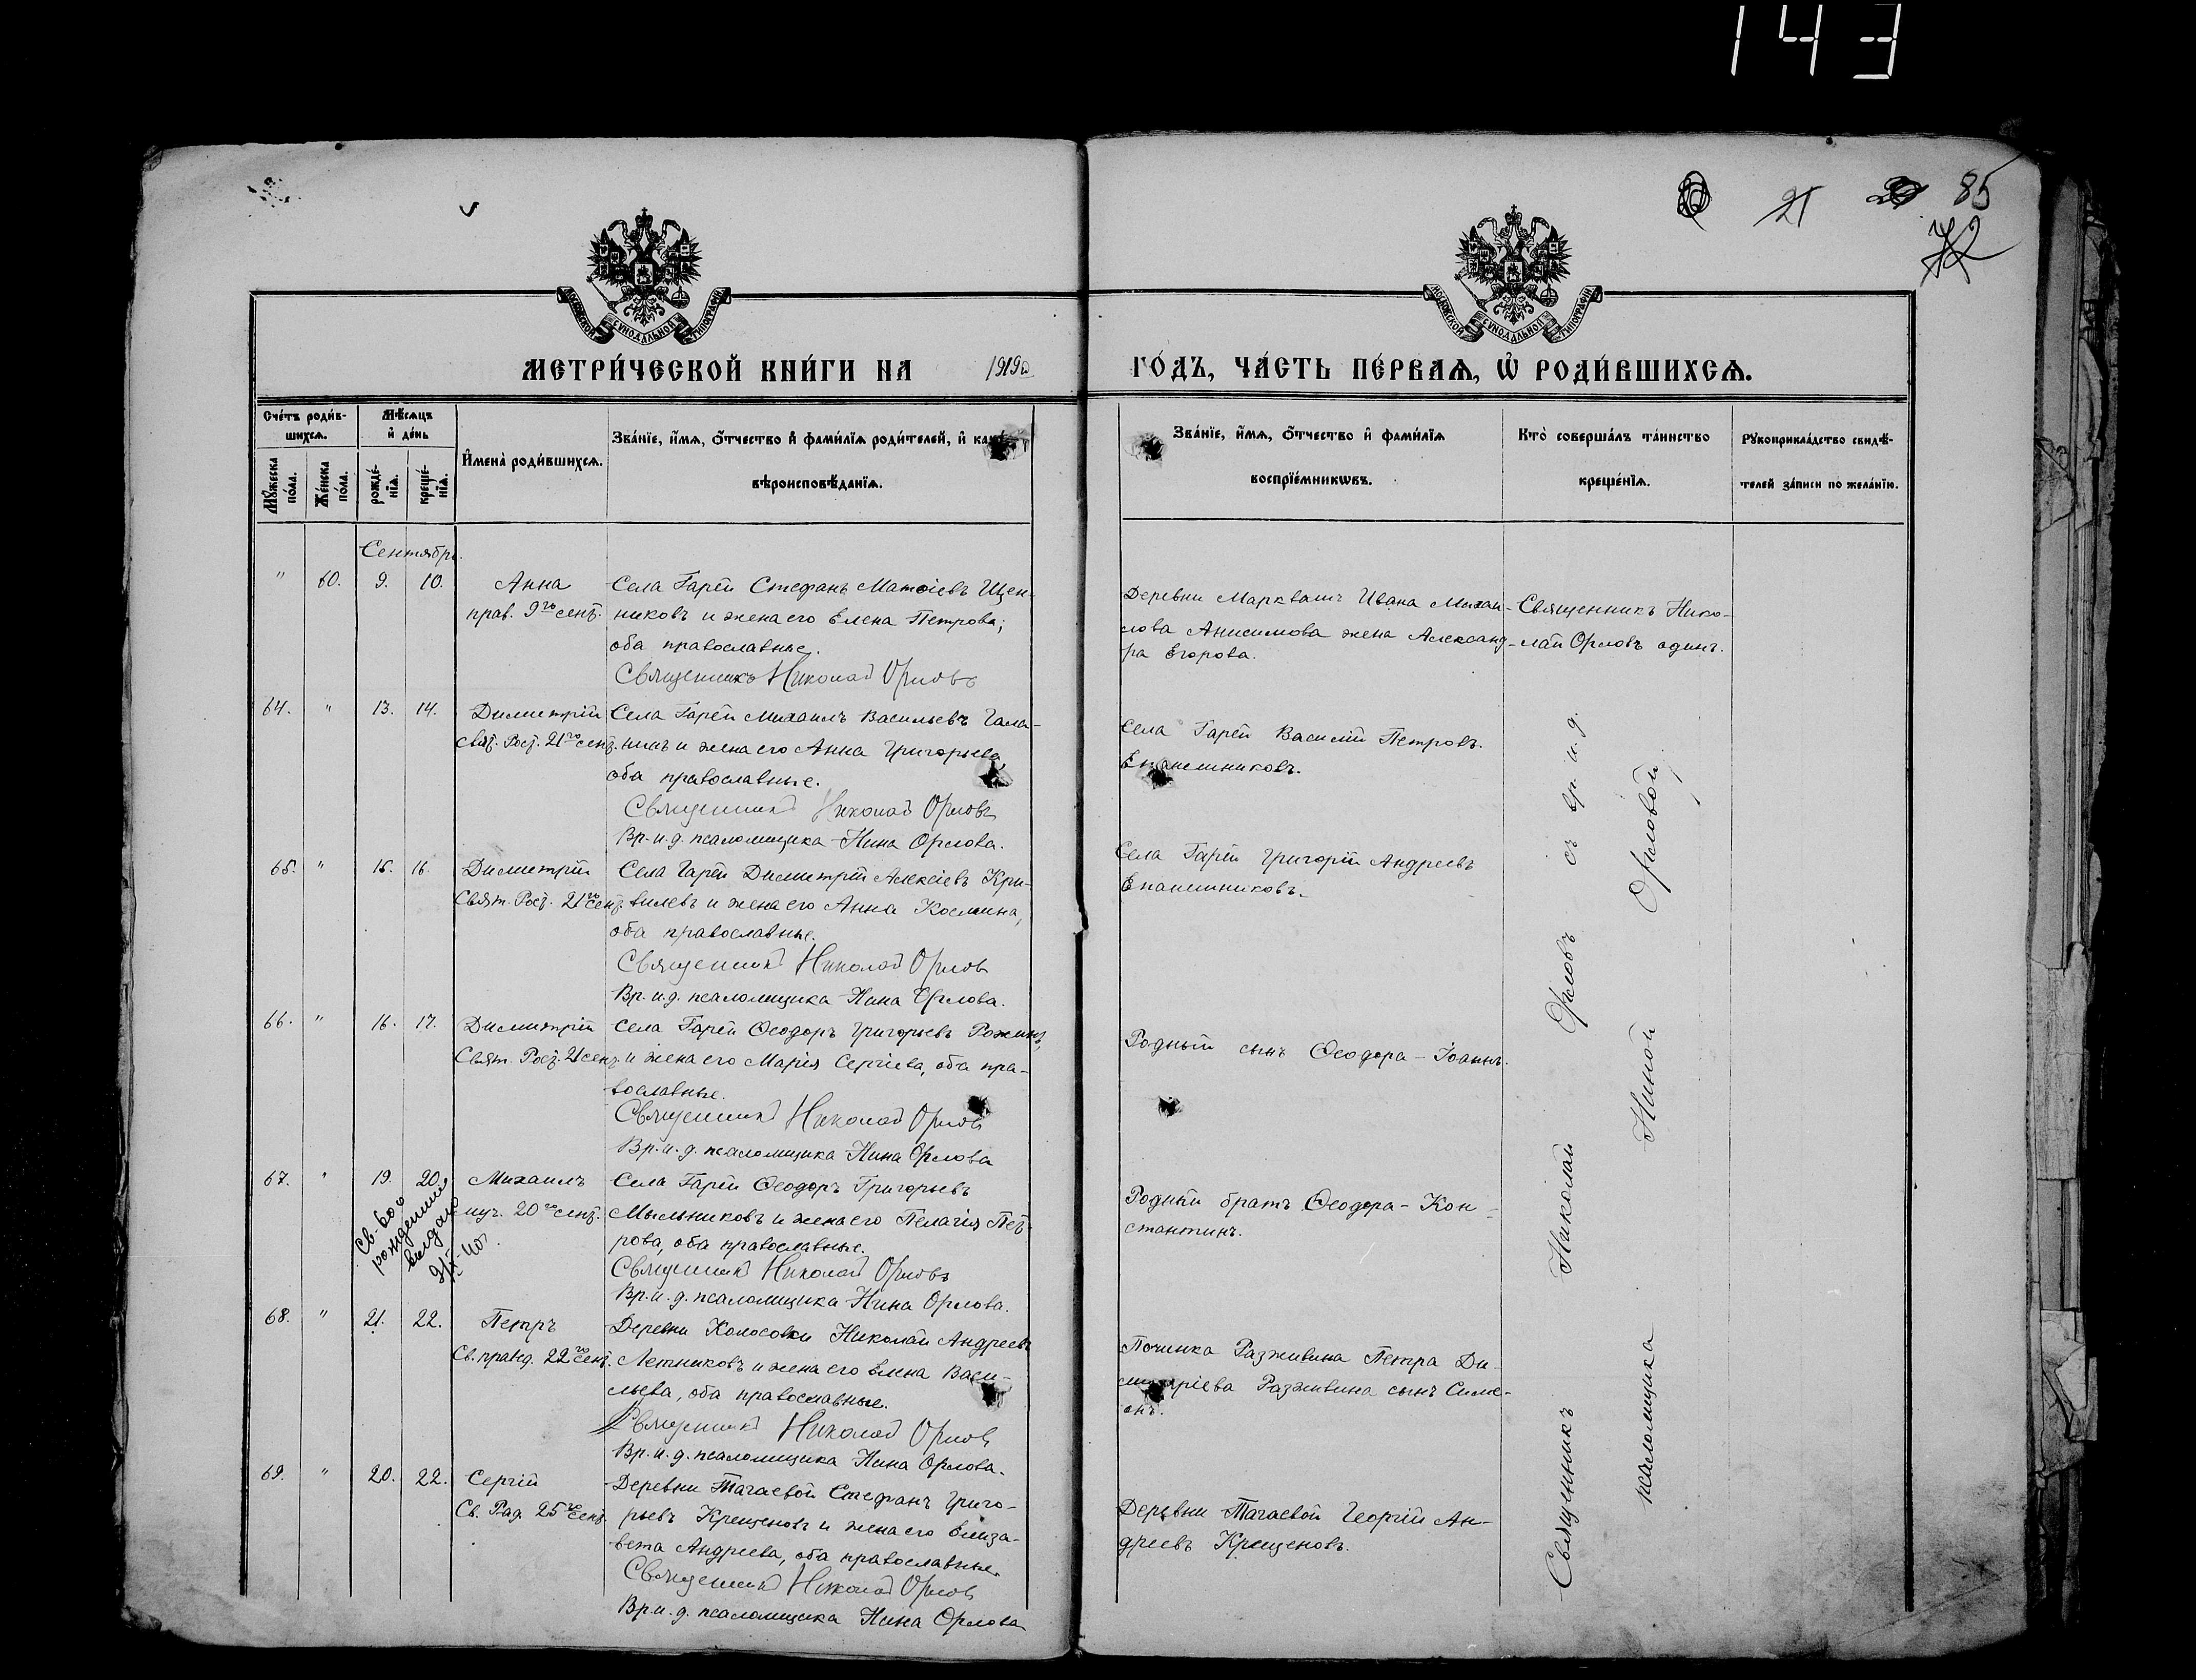 143
21 85
МОСКОВСКОЙ СУНОДАЛЬНОЙ ТИПОГРАФІИ
МОСКОВСКОЙ СУНОДАЛЬНОЙ ТИПОГРАФІИ
МЕТРИ́ЧЕСКОЙ КНИ́ГИ НА 1919й ГО́ДЪ, ЧА́СТЬ ПЕ́РВАѦ, Ѡ҆ РОДИ́ВШИХСѦ.
Сче́тъ роди́в-
шихсѧ.
Мꙋ́жеска по́ла.
Же́нска по́ла.
Мѣ́сѧцъ
и҆ де́нь
рожде́-
нїѧ.
креще́-
нїѧ.
И҆мена̀ роди́вшихсѧ.
Зва́нїе, и҆́мѧ, ѻ҆́тчество и҆ фами́лїѧ роди́телей, и҆
вѣроисповѣ́данїѧ.
Зва́нїе, и҆́мѧ, ѻ҆́тчество и҆ фами́лїѧ
воспрїе́мникѡвъ.
Кто̀ соверша́лъ та́инство
креще́нїѧ.
Рꙋкоприкла́дство свидѣ́-
телей за́писи по жела́нїю.
Сентябрь.
" 60. 9. 10. Анна
прав. 9го сент.
Села Гарей Стефанъ Матѳіевъ Щен-
никовъ и жена его Елена Петрова;
оба православные.
Священникъ Николай Орловъ
Деревни Марквашъ Ивана Михаи-
лова Анисимова жена Александ-
ра Егорова.
Священникъ Нико-
лай Орловъ одинъ.
64. " 13. 14. Димитрій
Свят. Рост. 21го сент.
Села Гарей Михаилъ Васильевъ Гала-
нинъ и жена его Анна Григорьева,
оба православные.
Священникъ Николай Орловъ
Вр. и. д. псаломщика Нина Орлова.
Села Гарей Василій Петровъ
Епанешниковъ.
65. " 15. 16. Димитрій
Свят. Рост. 21го сент.
Села Гарей Димитрій Алексіевъ Кри-
вилевъ и жена его Анна Космина,
оба православные.
Священникъ Николай Орловъ
Вр. и. д. псаломщика Нина Орлова.
Села Гарей Григорій Андреевъ
Епанешниковъ.
66. " 16. 17. Димитрій
Свят. Рост. 21 сент.
Села Гарей Ѳеодоръ Григорьевъ Рожинъ,
и жена его Марія Сергіева, оба пра-
вославные.
Священникъ Николай Орловъ
Вр. и. д. псаломщика Нина Орлова
Родный сынъ Ѳеодора - Іоаннъ.
67. " 19. 20. Михаилъ
муч. 20го сент.
Св-во о
рождении
выдано
9/X-40г.
Села Гарей Ѳеодоръ Григорьевъ
Мыльниковъ и жена его Пелагія Пет-
рова, оба православные.
Священникъ Николай Орловъ
Вр. и. д. псаломщика Нина Орлова.
Родный братъ Ѳеодора - Кон-
стантинъ.
68. " 21. 22. Петръ
Св. правед. 22го сент.
Деревни Колосовки Николай Андреевъ
Летниковъ и жена его Елена Васи-
льева, оба православные.
Священникъ Николай Орловъ
Вр. и. д. псаломщика Нина Орлова.
Починка Разживина Петра Ди-
митріева Разживина сынъ Симе-
онъ.
69. " 20. 22. Сергій
Св. Рад. 25го сент.
Деревни Тагаевой Стефанъ Григо-
рьевъ Крещеновъ и жена его Елиза-
вета Андреева, оба православные.
Священникъ Николай Орловъ
Вр. и. д. псаломщика Нина Орлова
Деревни Тагаевой Георгій Ан-
дреевъ Крещеновъ.
Священникъ Николай Орловъ съ вр. и. д.
псаломщика Ниной Орловой